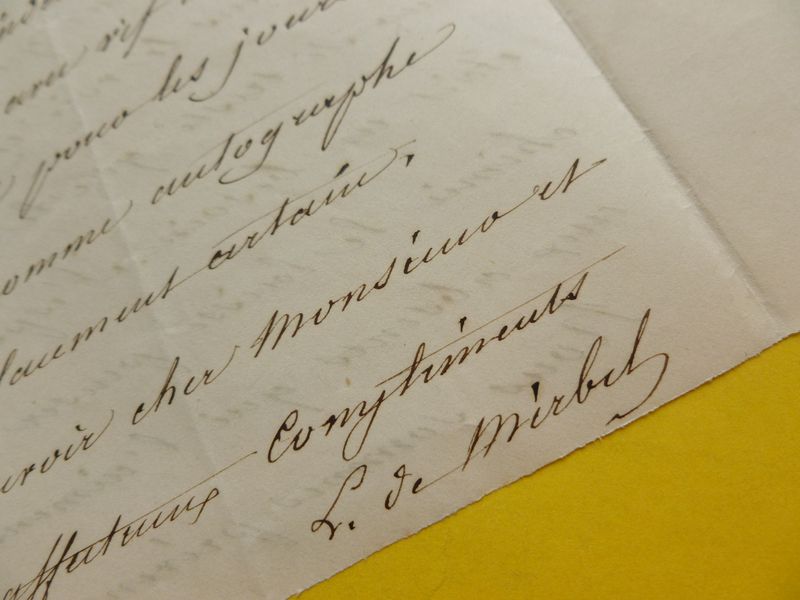 pour les jour
comme autographe
certain.
cevoir cher Monsieur et
affectueux Compliments
L. de Mirbel